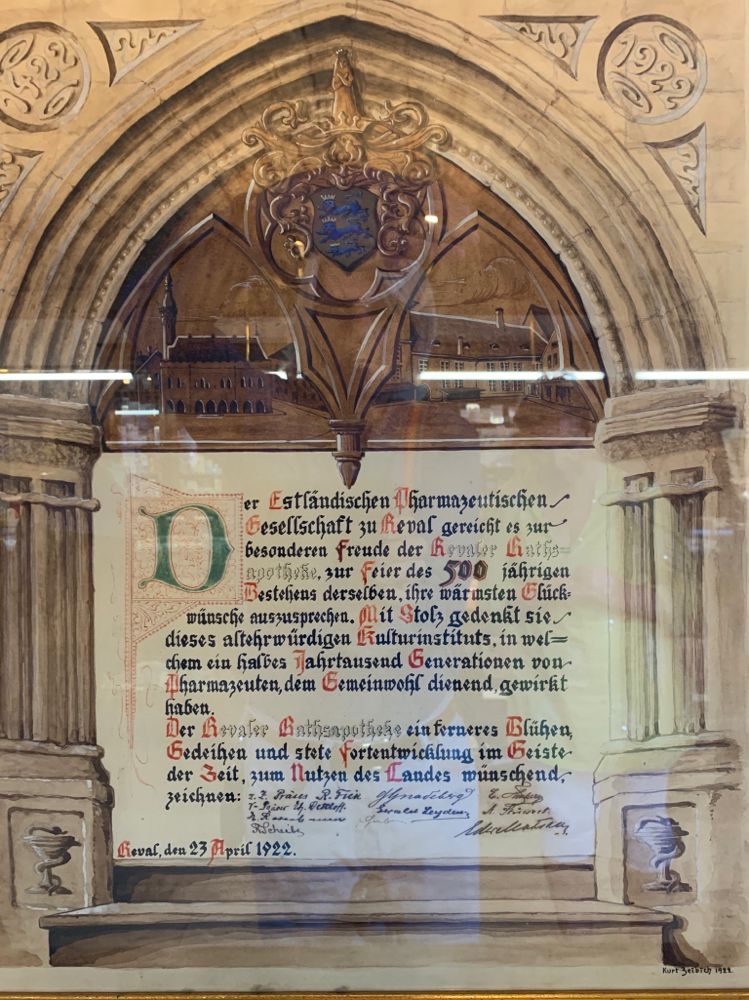 1422
1922
Der Estländischen Pharmazeutischen
Gesellschaft zu Reval gereicht es zur
besonderen Freude der Revaler Raths=
apotheke, zur Feier des 500 jährigen
Bestehens derselben, ihre wärmsten Glück-
wünsche auszusprechen. Mit Stolz gedenkt sie
dieses altehrwürdigen Kulturinstituts, in wel=
chem ein halbes Jahrtausend Generationen von
Pharmazeuten, dem Gemeinwohl dienend, gewirkt
haben.
Der Revaler Rathsapotheke ein ferneres Blühen,
Gedeihen und stete Fortentwicklung im Geiste
der Zeit, zum Nutzen des Landes wünschend,
zeichnen: z. Z. Präses R. Fick
Reval, den 23 April 1922.
Kurt Zeibich 1922.